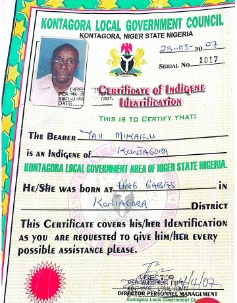 KONTAGORA LOCAL GOVERNMENT COUNCIL
KONTAGORA, NIGER STATE NIGERIA
SERIAL NO. 1017
Certificate of Indigene
Identification
THIS IS TO CERTIFY THAT:
THE BEARER
IS AN INDIGENE OF KONTAGORA
KONTAGORA LOCAL GOVERNMENT AREA OF NIGER STATE NIGERIA.
HE/SHE WAS BORN AT IN
KONTAGORA DISTRICT
THIS CERTIFICATE COVERS HIS/HER IDENTIFICATION
AS YOU ARE REQUESTED TO GIVE HIM/HER EVERY
POSSIBLE ASSISTANCE PLEASE.
DIRECTOR
DIRECTOR PERSONNEL MANAGEMENT
Kontagora Local Government